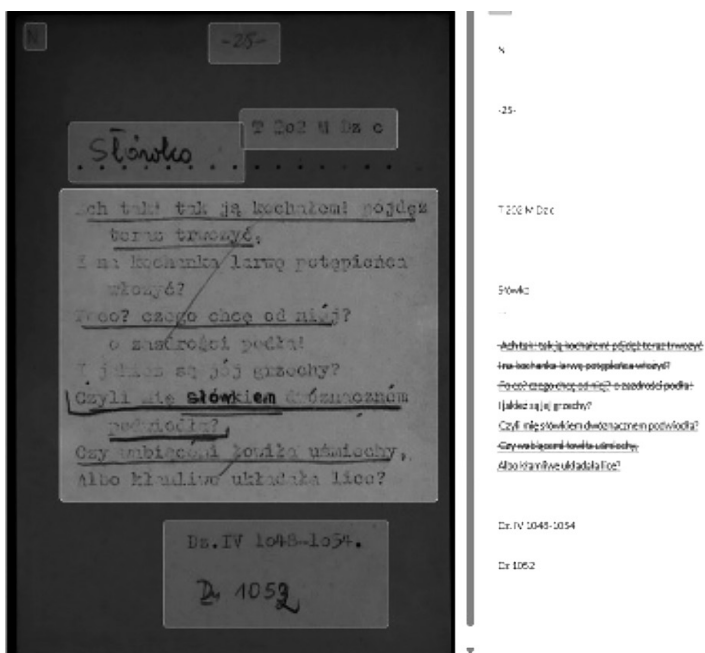 N
-25-
T 202 M Dz c
Słówko
Ach tak! tak ją kochałem! pójdęż
teraz trwożyć,
I na kochanka larwę potępieńca
włożyć?
Poco? czego chcę od niéj?
o zazdrości podła!
I jakież są jéj grzechy?
Czyli mię słówkiem dwóznaczném
podwiodła?
Czy wabiącemi łowiła uśmiechy,
Albo kłamliwe układała lice?
Dz.IV 1048-1054.
Dz 1052
N
-25-
T 202 M Dz c
Słówko
...
Ach tak! tak ją kochałem! pójdęż teraz trwożyć
I na kochanka larwę potępieńca włożyć?
Po co? czego chcę od niej? o zazdrości podła!
I jakież są jej grzechy?
Czyli mię słówkiem dwóznacznem podwiodła?
Czy wabiącemi łowiła uśmiechy,
Albo kłamliwe układała lice?
Dz. IV 1048-1054
Dz 1052